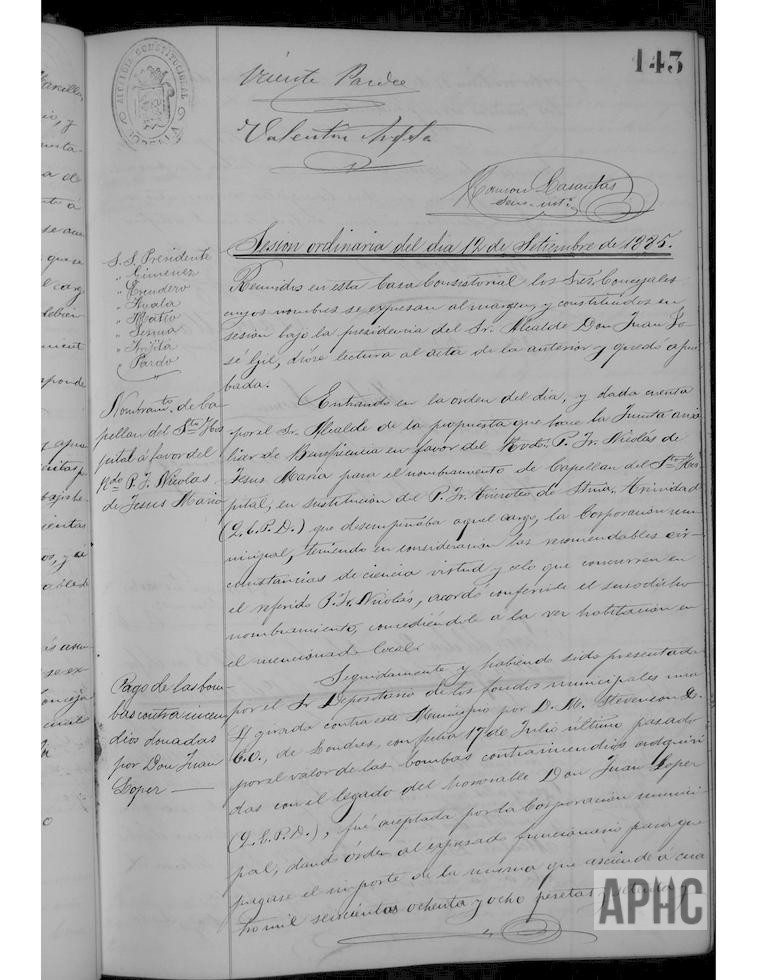 143
ALCALDIA CONSTITUCIONAL
Vicente Pardo
Valentin Arfila
Ramon Casanovas
Secr. int.
Sesion ordinaria del dia 12 de Setiembre de 1895.
S. S. Presidente
" Gimenez
" Trendero
" Ayala
" Mateo
" Sesma
" Arfila
" Pardo
Reunidos en esta Casa Consistorial los Sres. Concejales
cuyos nombres se expresan al margen, y constituidos en
sesion bajo la presidencia del Sr. Alcalde Don Juan Jo-
sé Gil, dióse lectura al acta de la anterior y quedó apro
bada.
Nombramto. de Ca-
pellan del Sto. Hos
pital á favor del
Rdo P. F. Nicolas
de Jesus Maria
Entrando en la orden del dia, y dada cuenta
por el Sr. Alcalde de la propuesta que hace la Junta auxi
liar de Beneficencia en favor del Rvdo. P. Fr. Nicolás de
Jesus Maria para el nombramiento de Capellan del Sto. Hos
pital, en sustitucion del P. Fr. Timoteo de Stma. Trinidad
(Q.E.P.D.) que desempeñaba aquel cargo, la Corporacion mu-
nicipal, teniendo en consideracion las recomendables cir-
cunstancias de ciencia virtud y celo que concurren en
el referido P. Fr. Nicolás, acordó conferirle el susodicho
nombramiento, concediéndole á la vez habitacion en
el mencionado local.
Pago de las bom-
bas contra incen
dios donadas
por Don Juan
Loper —
Seguidamente y habiendo sido presentada
por el Sr Depositario de los fondos municipales una
L/ girada contra este Municipio por D. M. Stevenson &
C.O., de Londres, con fecha 17 de Julio último pasado
por el valor de las bombas contra incendios adquiri
das con el legado del honorable Don Juan Loper
(Q.E.P.D.), fué aceptada por la Corporacion munici
pal, dando órden al expresado funcionario para que
pagase el importe de la misma que asciende á cua
tro mil seiscientas ochenta y ocho pesetas y setenta y
APHC